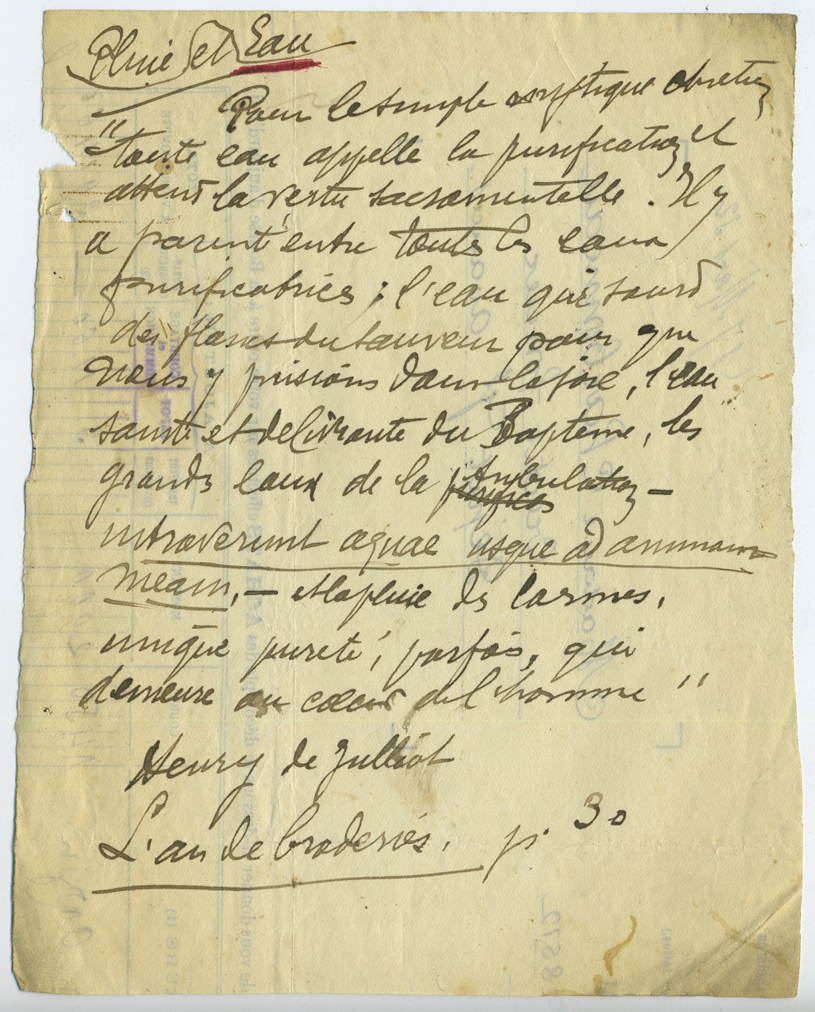 Pluie et Eau
Pour le simple mystique chrétien
"toute eau appelle la purification et
attend la vertu sacramentelle. Il y
a parenté entre toutes les eaux
purificatrices ; l'eau qui sourd
des flancs du Sauveur pour que
nous y puisions dans la joie, l'eau
sainte et delivrante du Baptême, les
grands eaux de la tribulation –
intraverunt aquae usque ad animam
meam, – et la pluie des larmes,
unique pureté, parfois, qui
demeure au cœur de l'homme"
Henry de Julliot
L'an de broderies. p. 30